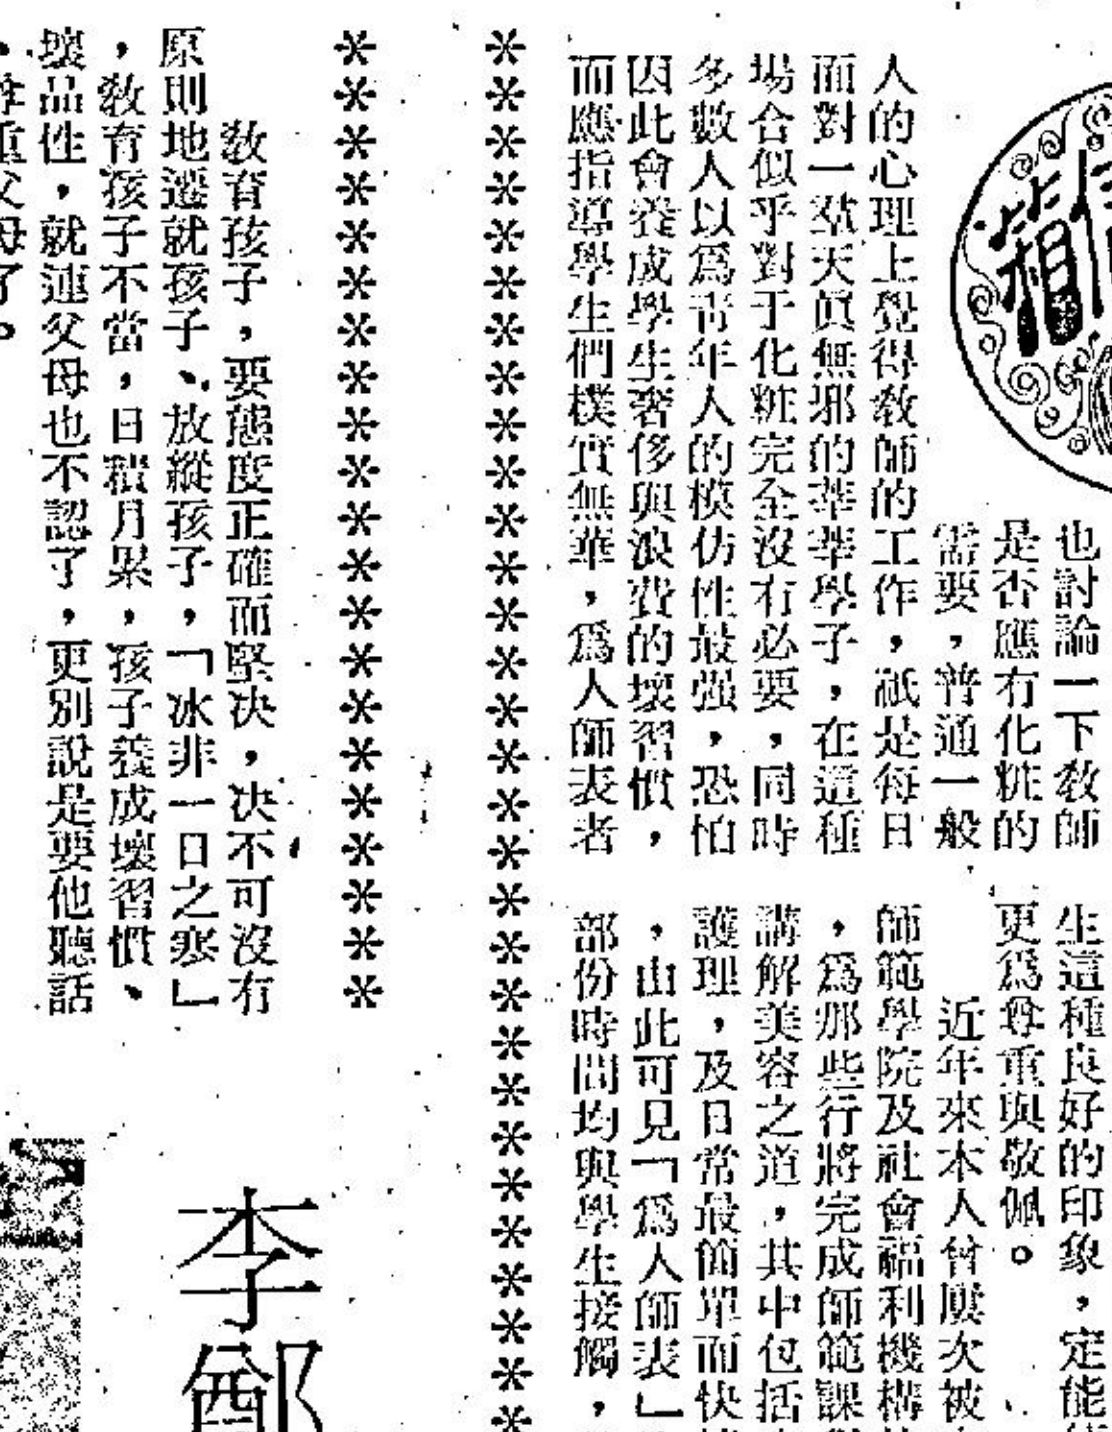 也討論一下教師
是否應有化粧的
需要，普通一般
人的心理上覺得教師的工作，祇是每日
面對一羣天眞無邪的莘莘學子，在這種
場合似乎對于化粧完全沒有必要，同時
多數人以爲靑年人的模仿性最强，恐怕
因此會養成學生奢侈與浪費的壞習慣，
而應指導學生們樸實無華，爲人師表者
生這種良好的印象，定能
更爲尊重與敬佩。
近年來本人曾屢次被
師範學院及社會福利機構
，爲那些行將完成師範課
講解美容之道，其中包括
護理，及日常最簡單而快
，由此可見「爲人師表」
部份時間均與學生接觸，
＊＊＊＊＊＊＊＊＊＊＊＊＊＊＊＊＊＊＊＊＊＊＊＊＊＊＊＊＊
＊＊＊＊＊＊＊＊＊＊＊＊＊＊＊＊＊＊＊＊
教育孩子，要態度正確而堅决，决不可沒有
原則地遷就孩子、放縱孩子，「冰非一日之寒」
，教育孩子不當，日積月累，孩子養成壞習慣、
壞品性，就連父母也不認了，更別說是要他聽話
、尊重父母了。
李鄒